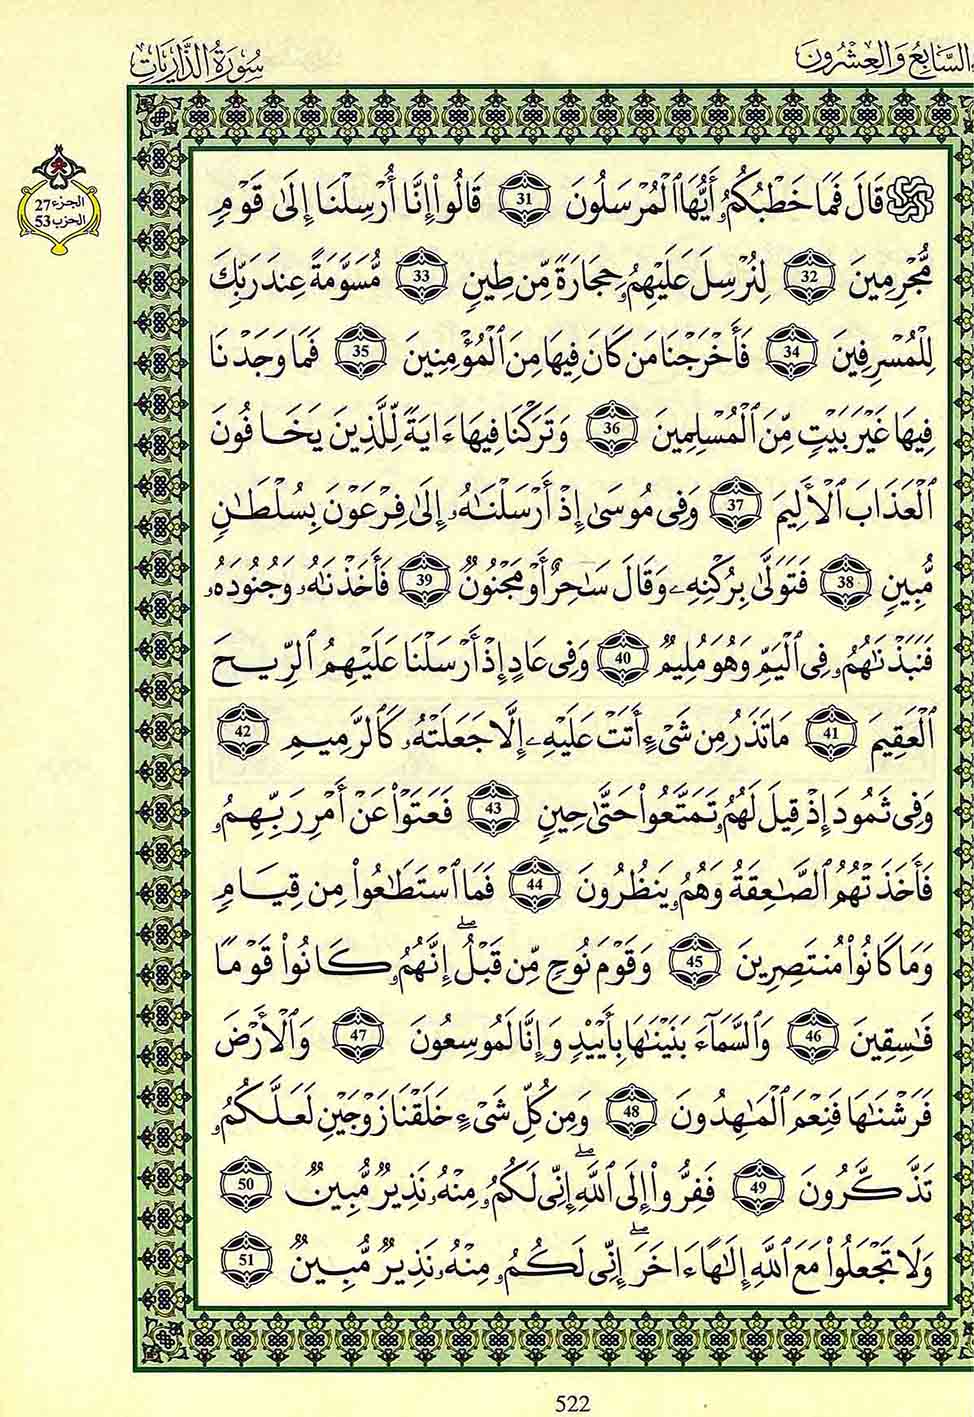 السَّابِعُ وَالعِشْرُونَ
سُورَةُ الذَّارِيَاتِ
الجزء 27
الحزب 53
قَالَ فَمَا خَطْبُكُمُۥٓ أَيُّهَا ٱلْمُرْسَلُونَ 31 قَالُوٓا۟ إِنَّآ أُرْسِلْنَآ إِلَىٰ قَوْمٍ
مُّجْرِمِينَ 32 لِنُرْسِلَ عَلَيْهِمُۥ حِجَارَةً مِّن طِينٍ 33 مُّسَوَّمَةً عِندَ رَبِّكَ
لِلْمُسْرِفِينَ 34 فَأَخْرَجْنَا مَن كَانَ فِيهَا مِنَ ٱلْمُؤْمِنِينَ 35 فَمَا وَجَدْنَا
فِيهَا غَيْرَ بَيْتٍ مِّنَ ٱلْمُسْلِمِينَ 36 وَتَرَكْنَا فِيهَآ ءَايَةً لِّلَّذِينَ يَخَافُونَ
ٱلْعَذَابَ ٱلْأَلِيمَ 37 وَفِى مُوسَىٰٓ إِذْ أَرْسَلْنَٰهُۥ إِلَىٰ فِرْعَوْنَ بِسُلْطَٰنٍ
مُّبِينٍ 38 فَتَوَلَّىٰ بِرُكْنِهِۦ وَقَالَ سَٰحِرٌ أَوْ مَجْنُونٌ 39 فَأَخَذْنَٰهُۥ وَجُنُودَهُۥ
فَنَبَذْنَٰهُمُۥ فِى ٱلْيَمِّ وَهُوَ مُلِيمٌ 40 وَفِى عَادٍ إِذْ أَرْسَلْنَا عَلَيْهِمُ ٱلرِّيحَ
ٱلْعَقِيمَ 41 مَا تَذَرُ مِن شَىْءٍ أَتَتْ عَلَيْهِۦ إِلَّا جَعَلَتْهُۥ كَٱلرَّمِيمِ 42
وَفِى ثَمُودَ إِذْ قِيلَ لَهُمُۥ تَمَتَّعُوا۟ حَتَّىٰ حِينٍ 43 فَعَتَوْا۟ عَنْ أَمْرِ رَبِّهِمُۥ
فَأَخَذَتْهُمُ ٱلصَّٰعِقَةُ وَهُمُۥ يَنظُرُونَ 44 فَمَا ٱسْتَطَٰعُوا۟ مِن قِيَامٍ
وَمَا كَانُوا۟ مُنتَصِرِينَ 45 وَقَوْمَ نُوحٍ مِّن قَبْلُ ۖ إِنَّهُمُۥ كَانُوا۟ قَوْمًا
فَٰسِقِينَ 46 وَٱلسَّمَآءَ بَنَيْنَٰهَا بِأَيْيْدٍ وَإِنَّا لَمُوسِعُونَ 47 وَٱلْأَرْضَ
فَرَشْنَٰهَا فَنِعْمَ ٱلْمَٰهِدُونَ 48 وَمِن كُلِّ شَىْءٍ خَلَقْنَا زَوْجَيْنِ لَعَلَّكُمُۥ
تَذَّكَّرُونَ 49 فَفِرُّوٓا۟ إِلَى ٱللَّهِ ۖ إِنِّى لَكُمُۥ مِنْهُۥ نَذِيرٌ مُّبِينٌ 50
وَلَا تَجْعَلُوا۟ مَعَ ٱللَّهِ إِلَٰهًا ءَاخَرَ ۖ إِنِّى لَكُمُۥ مِنْهُۥ نَذِيرٌ مُّبِينٌ 51
522